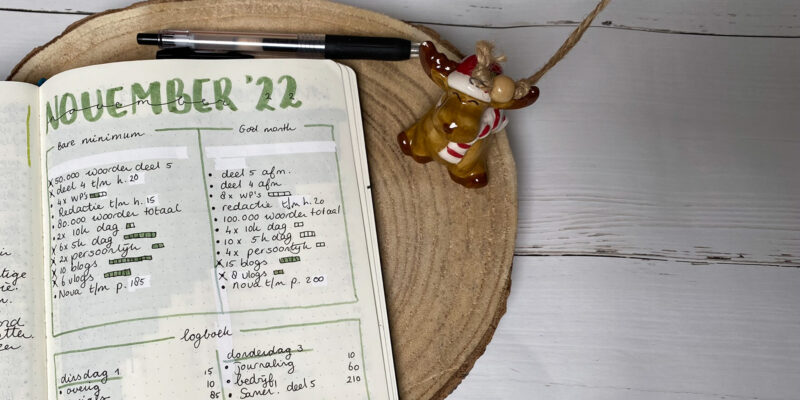 NOVEMBER '22
november 22
Bare minimum
x 50.000 woorden deel 5
x deel 4 t/m h. 20
x 4x WP's
• Redactie t/m h. 15
• 80.000 woorden totaal
• 2x 10h dag
x 6x 5h dag
x 2x persoonlijk
x 10 blogs
x 6 vlogs
• Nova t/m p. 185
God month
• deel 5 afm.
• deel 4 afm
• 8x WP's
• redactie t/m h. 20
• 100.000 woorden totaal
• 4x 10h dag
• 10x 5h dag
• 4x persoonlijk
x 15 blogs
x 8 vlogs
• nova t/m p. 200
logboek
dinsdag 1
• overig 15
10
85
donderdag 3
• journaling 10
• bedrijf 60
• Samen. deel 5 210